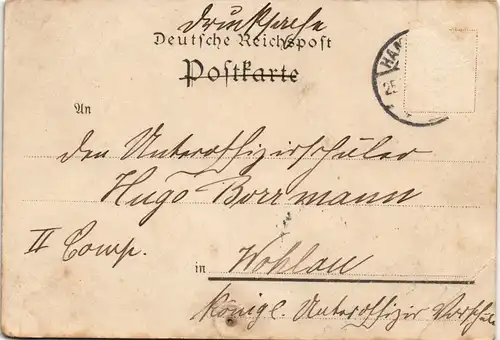 Drucksache
Deutsche Reichspost
Postkarte
HAM
25
An
den Unteroffizierschüler
Hugo Borrmann
II Comp.
in Wohlau
Königl. Unteroffizir Vorschule